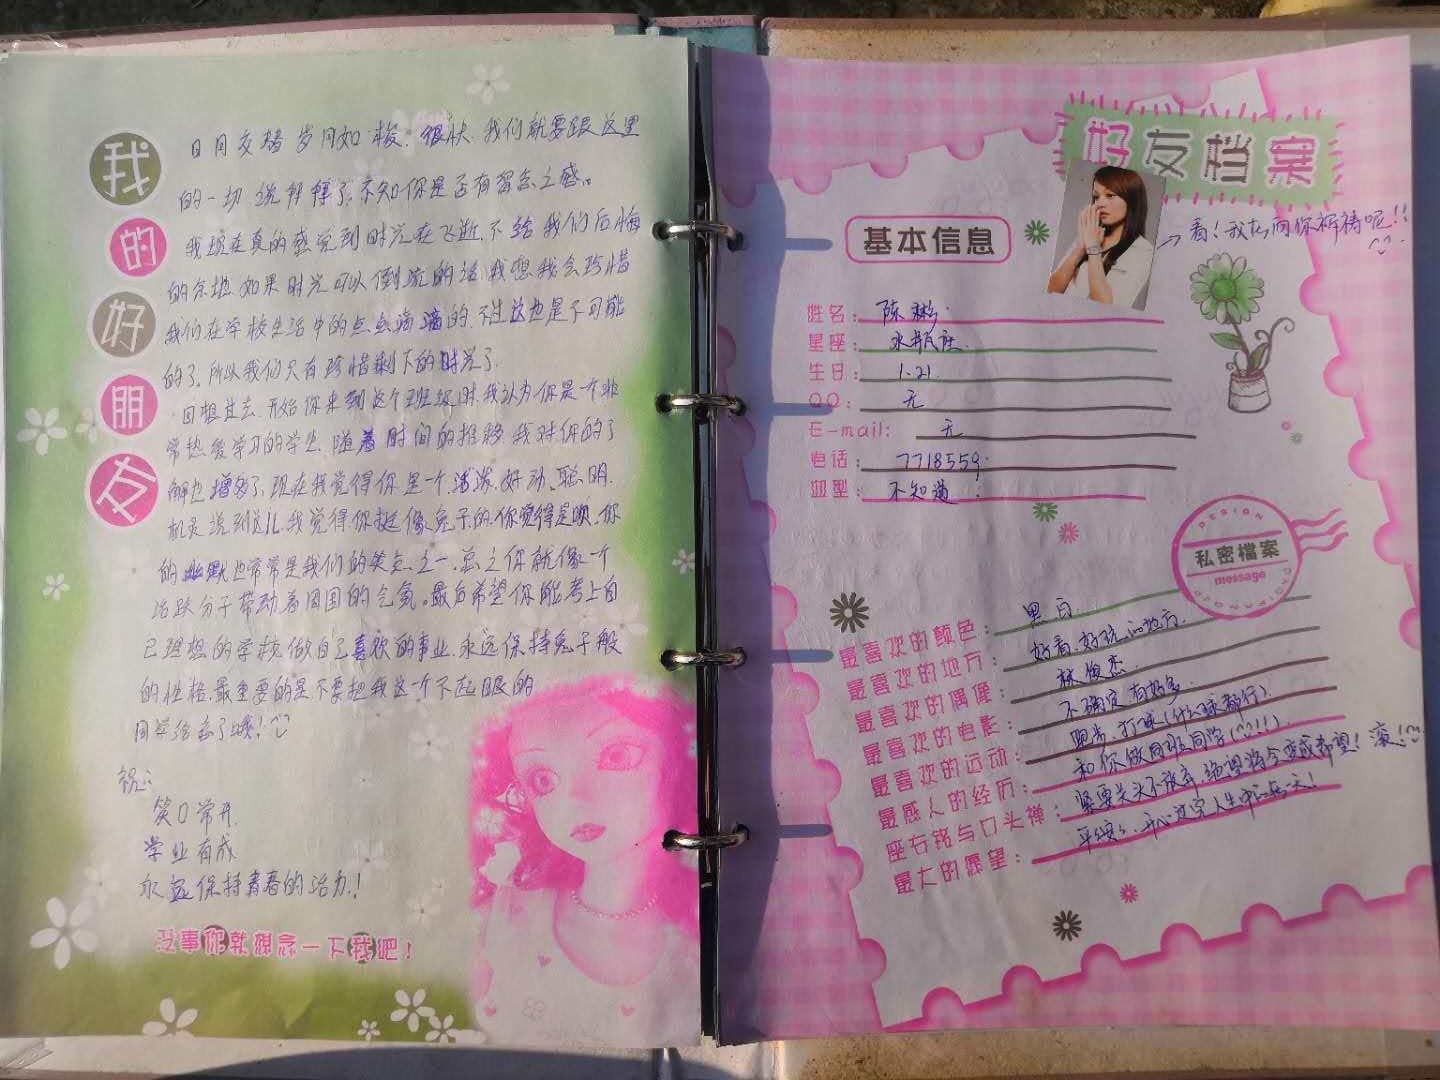 我的好朋友
日月交替 岁月如梭，很快 我们就要跟这里
的一切说拜拜了，不知你是否有留恋之感。
我现在真的感觉到时光在飞逝，不给我们后悔
的余地 如果时光可以倒流的话 我想我会珍惜
我们在学校生活中的点点滴滴的，不过这也是不可能
的了，所以我们只有珍惜剩下的时光了
回想过去，开始你来到这个班级时，我认为你是一个非
常热爱学习的学生，随着时间的推移 我对你的了
解也增多了，现在我觉得你是一个活泼、好动、聪明、
机灵 说到这儿，我觉得你挺像兔子的，你觉得是呗，你
的幽默也常常是我们的笑点之一，总之你就像一个
活跃分子带动着周围的气氛。最后希望你能考上自
己理想的学校，做自己喜欢的事业，永远保持兔子般
的性格，最重要的是不要把我这一个不起眼的
同学给忘了哦！
祝：
笑口常开
学业有成
永远保持青春的活力！
没事你就想念一下我吧！
好友档案
→看！我在向你祈祷呢！！
基本信息
姓名：陈彬
星座：水瓶座
生日：1.21
QQ：无
E-mail：无
电话：7718559
血型：不知道
DESIGN
私密檔案
message
最喜欢的颜色：黑白
最喜欢的地方：好看、好玩的地方
最喜欢的偶像：林俊杰
最喜欢的电影：不确定 有好多
最喜欢的运动：跑步、打球（什么球都行）
最感人的经历：和你做同班同学！！！
座右铭与口头禅：紧要关头不放弃，绝望将会变成希望！滚！
最大的愿望：平安、开心过完人生中的每一天！